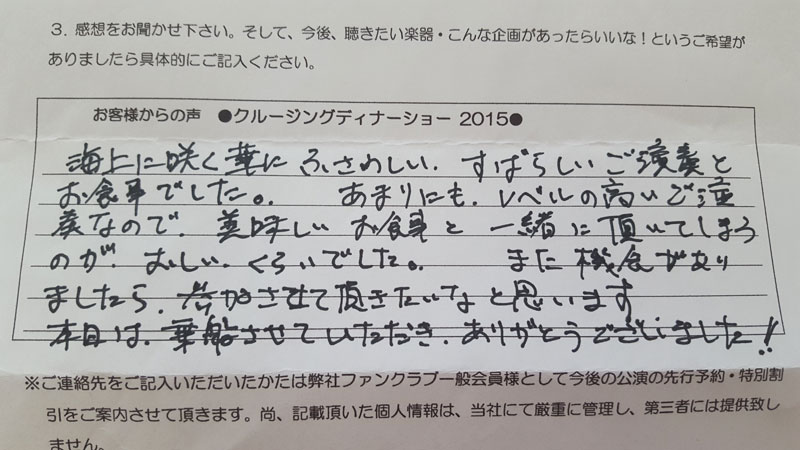 3. 感想をお聞かせ下さい。そして、今後、聴きたい楽器・こんな企画があったらいいな！というご希望が
ありましたら具体的にご記入ください。
お客様からの声 ●クルージングディナーショー 2015●
海上に咲く華に ふさわしい、すばらしいご演奏と
お食事でした。 あまりにも、レベルの高いご演
奏なので、美味しい お食事と 一緒に 頂いてしまう
のが、おしい、くらいでした。 また 機会があり
ましたら、参加させて頂きたいなと思います
本日は、乗船させていただき、ありがとうございました！
※ご連絡先をご記入いただいたかたは弊社ファンクラブ一般会員様として今後の公演の先行予約・特別割
引をご案内させて頂きます。尚、記載頂いた個人情報は、当社にて厳重に管理し、第三者には提供致し
ません。